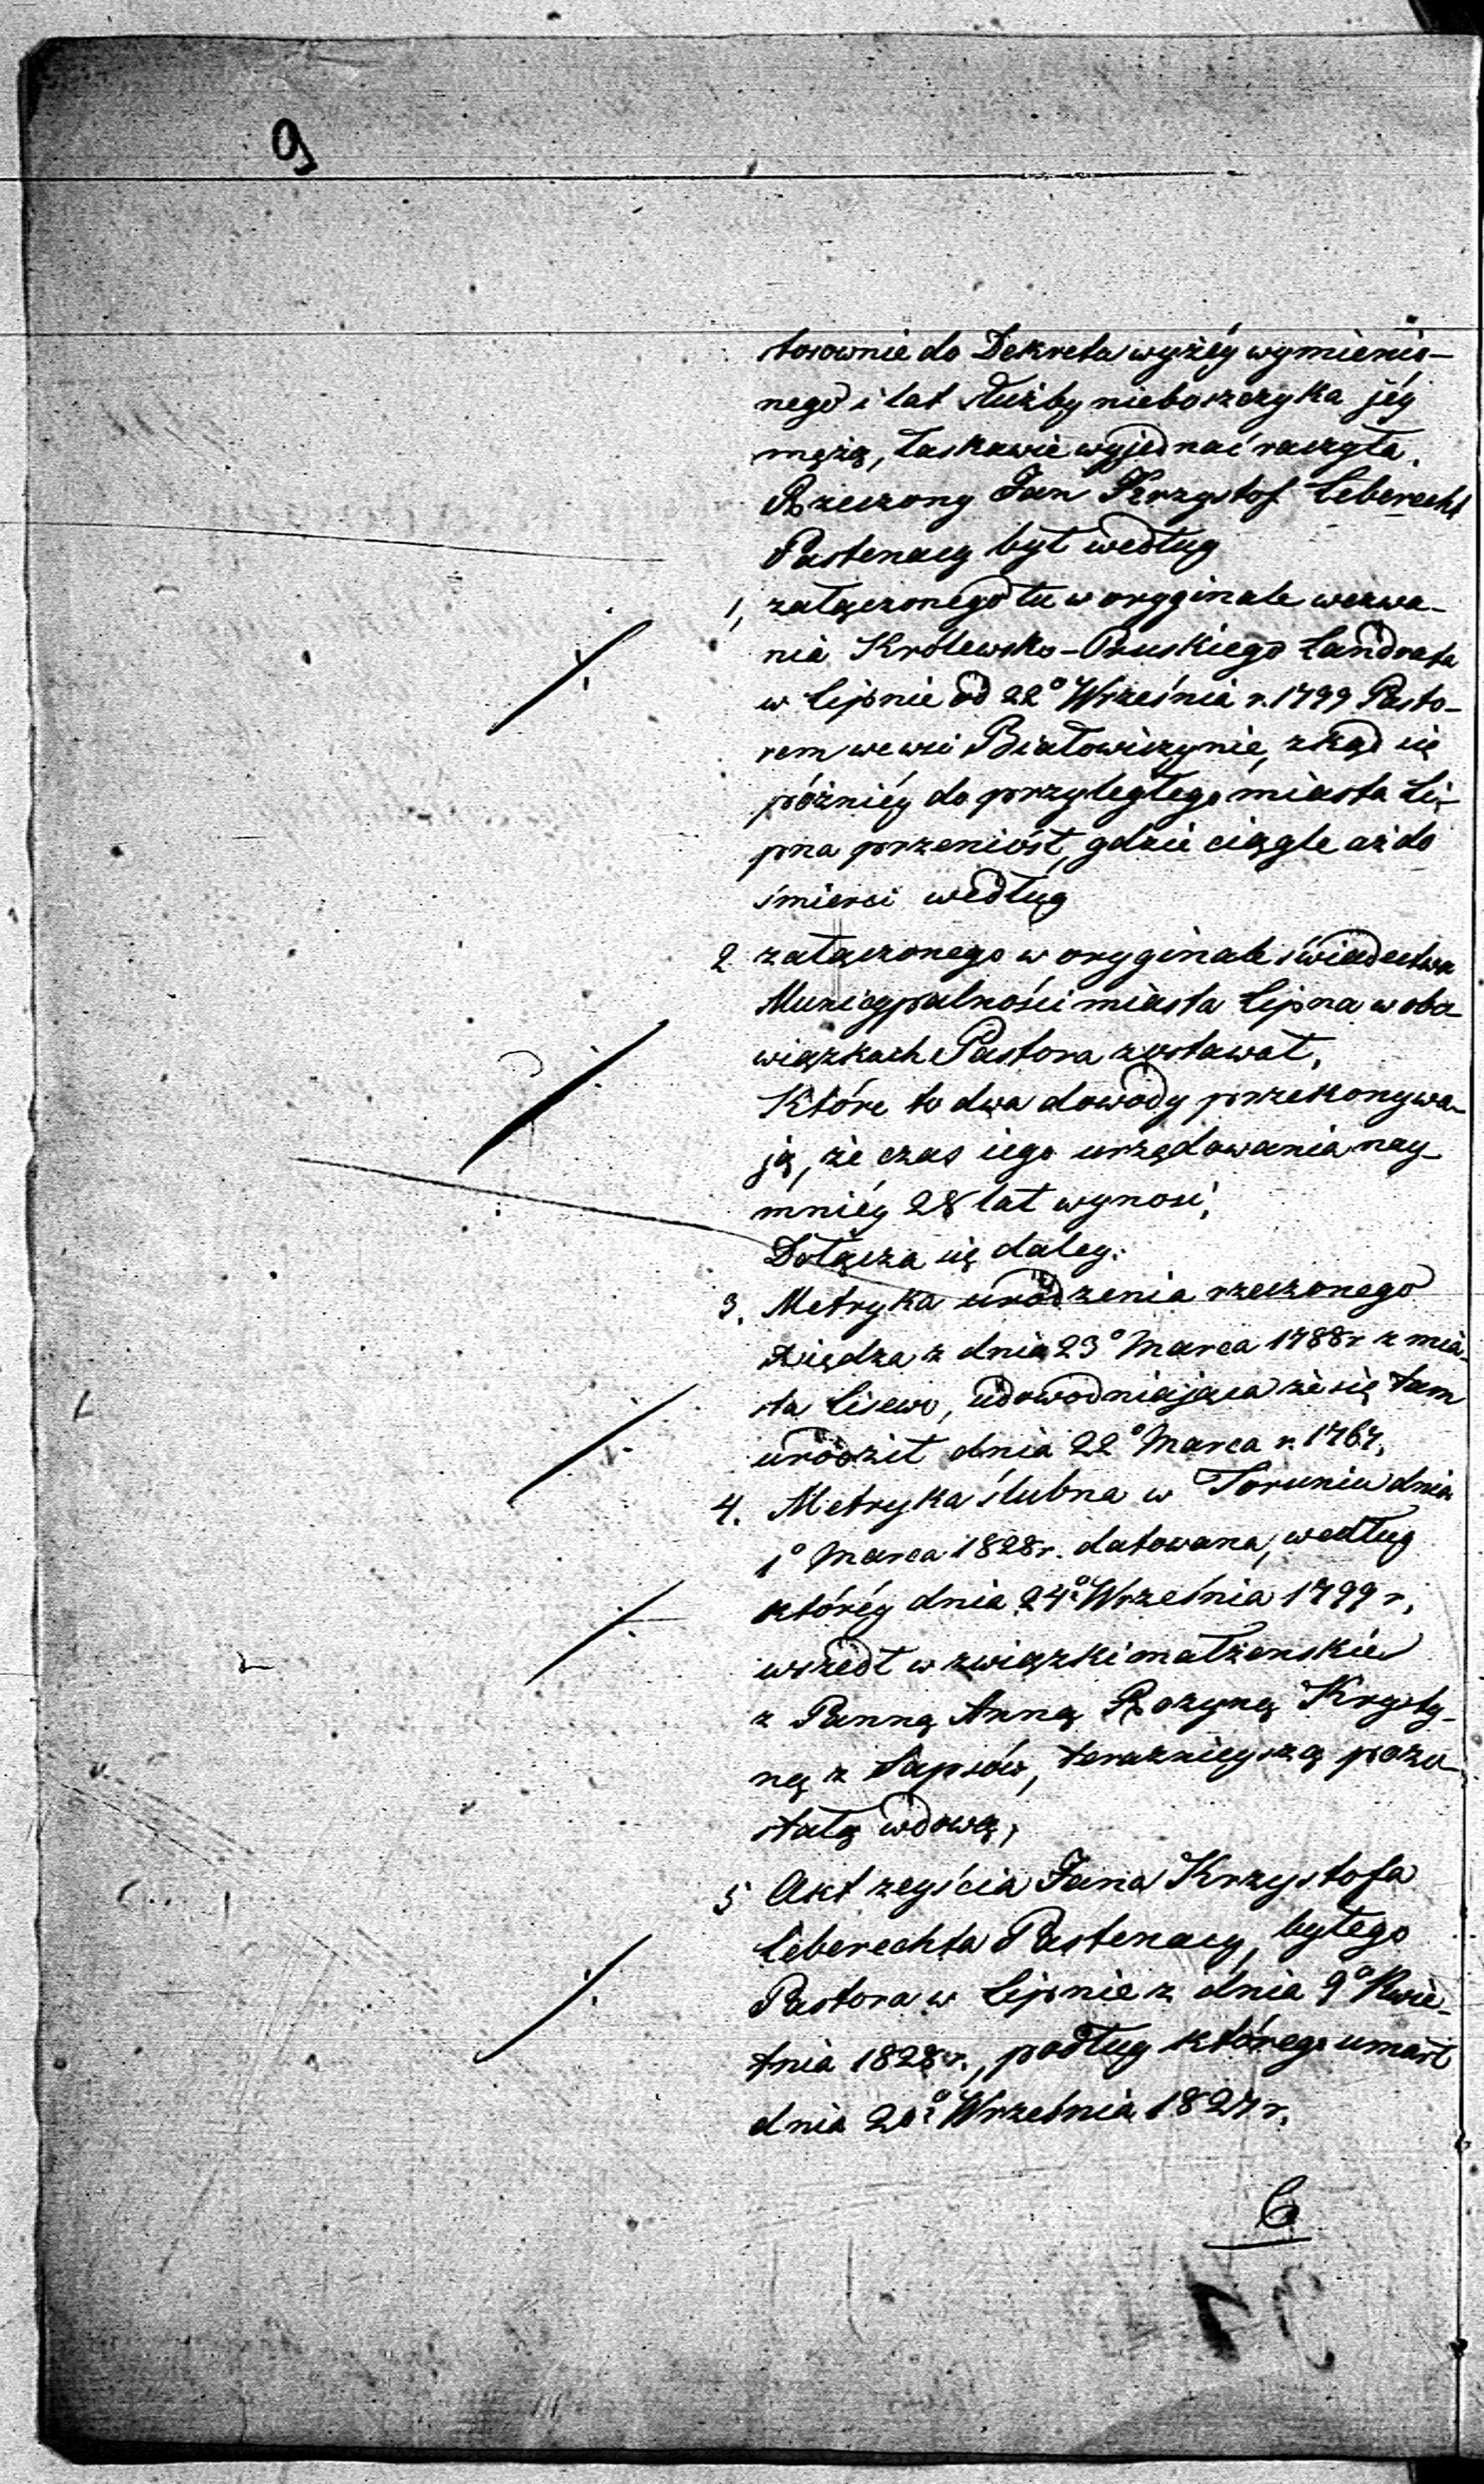 9
stosownie do Dekreta wyżéy wymienio-
nego i lat służby nieboszczyka jéy
mężą, łaskawie wyjednać raczyła.
Rzeczony Jan Krzysztof Leberecht
Pastenacy był według
1, załączonego tu w oryginale wezwa-
nia Królewsko-Pruskiego Landrata
w Lipnie od 22° Września r. 1799 Pasto-
rem we wsi Białowiczynie, zkąd się
późniéy do przyległego miasta Li-
pna przeniósł, gdzie ciągle aż do
śmierci według
2 załączonego w oryginale świadectwa
Municypalności miasta Lipna w obo-
wiązkach Pastora zostawał,
Które to dwa dowody przekonywa-
ją, że czas iego urzędowania nay-
mniéy 28 lat wynosi,
Dołącza się daley:
3. Metryka urodzenia rzeczonego
Xiędza z dnia 23° Marca 1788 r z mia-
sta Lisewo, udowodniająca że się tam
urodził dnia 22° Marca r. 1767,
4. Metryka ślubna w Toruniu dnia
1° Marca 1828 r. datowana, według
któréy dnia 24° Września 1799 r,
wszedł w związki małżenskie
z Panną Anną Rozyną Krysty-
ną z Sapsów, teraznieyszą pozo-
stałą wdową,
5 Akt zeyścia Jana Krzysztofa
Leberechta Pastenacy, byłego
Pastora w Lipnie z dnia 9° Kwie-
tnia 1828 r., podług którego umarł
dnia 20° Września 1827 r.